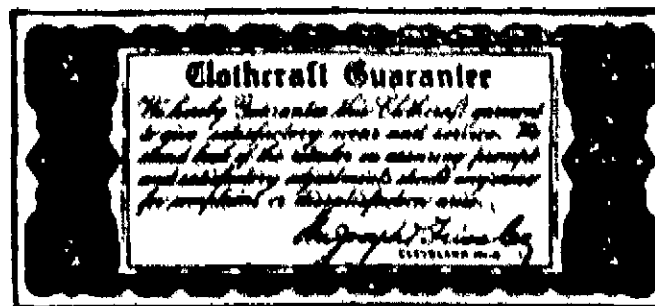 Clothcraft Guarantee
We hereby Guarantee this Clothcraft garment
to give satisfactory wear and service. We
stand back of the retailer in assuring prompt
and satisfactory adjustment should any cause
for complaint or dissatisfaction arise.
The Joseph & Feiss Co
CLEVELAND